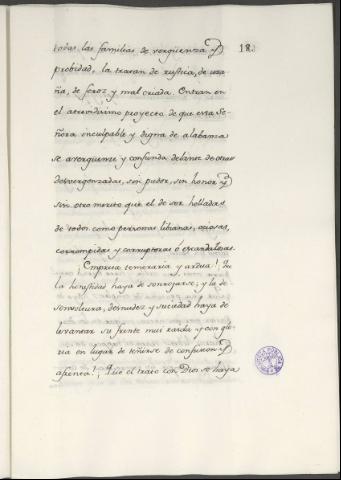 todas las familias de verguenza y
18.
probidad, la tratan de rustica, de ura-
ña, de feroz y mal criada. Entran en
el atrevidisimo proyecto de que esta Se-
ñora inculpable y digna de alabanza
se averguenze y confunda delante de otras
desvergonzadas, sin pudor, sin honor y
sin otro merito que el de ser holladas
de todos como personas libianas, ociosas,
corrompidas y corruptoras ó escandalosas.
¡Empresa temeraria y ardua! Que
la honestidad haya de sonrojarse; y la de-
semboltura, desnudez y suciedad haya de
levantar su frente mui narda y con glo-
ria en lugar de teñirse de confusion y
afrenta! ¡Que el trato con Dios se haya